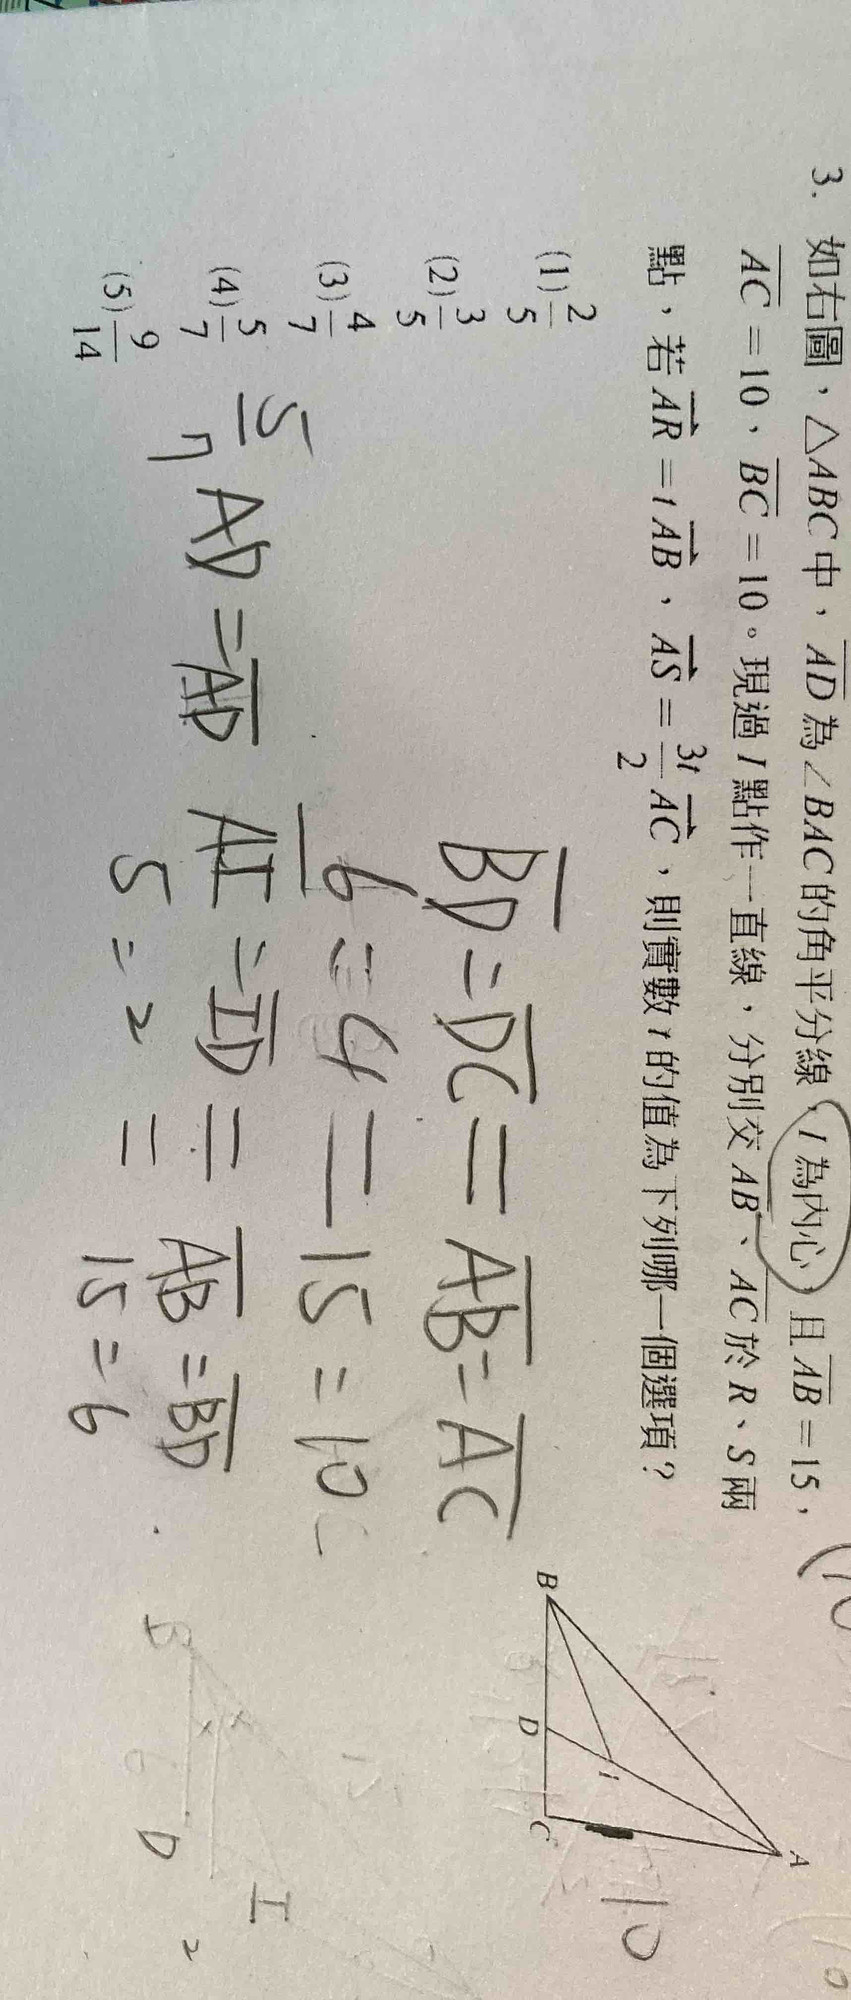 3. 如右圖，△ABC中，AD為∠BAC的角平分線，I為內心，且AB=15，
AC=10，BC=10。現過I點作一直線，分別交AB、AC於R、S兩
點，若AR=tAB，AS=3t/2 AC，則實數t的值為下列哪一個選項？
(1) 2/5
(2) 3/5
(3) 4/7
(4) 5/7
(5) 9/14
A
B
D
C
I
10
BD=DC=AB=AC
6=4=15=10
5/7 AD=AD AI=ID=AB=BD
5=2=15=6
B
6
D
I
2
15